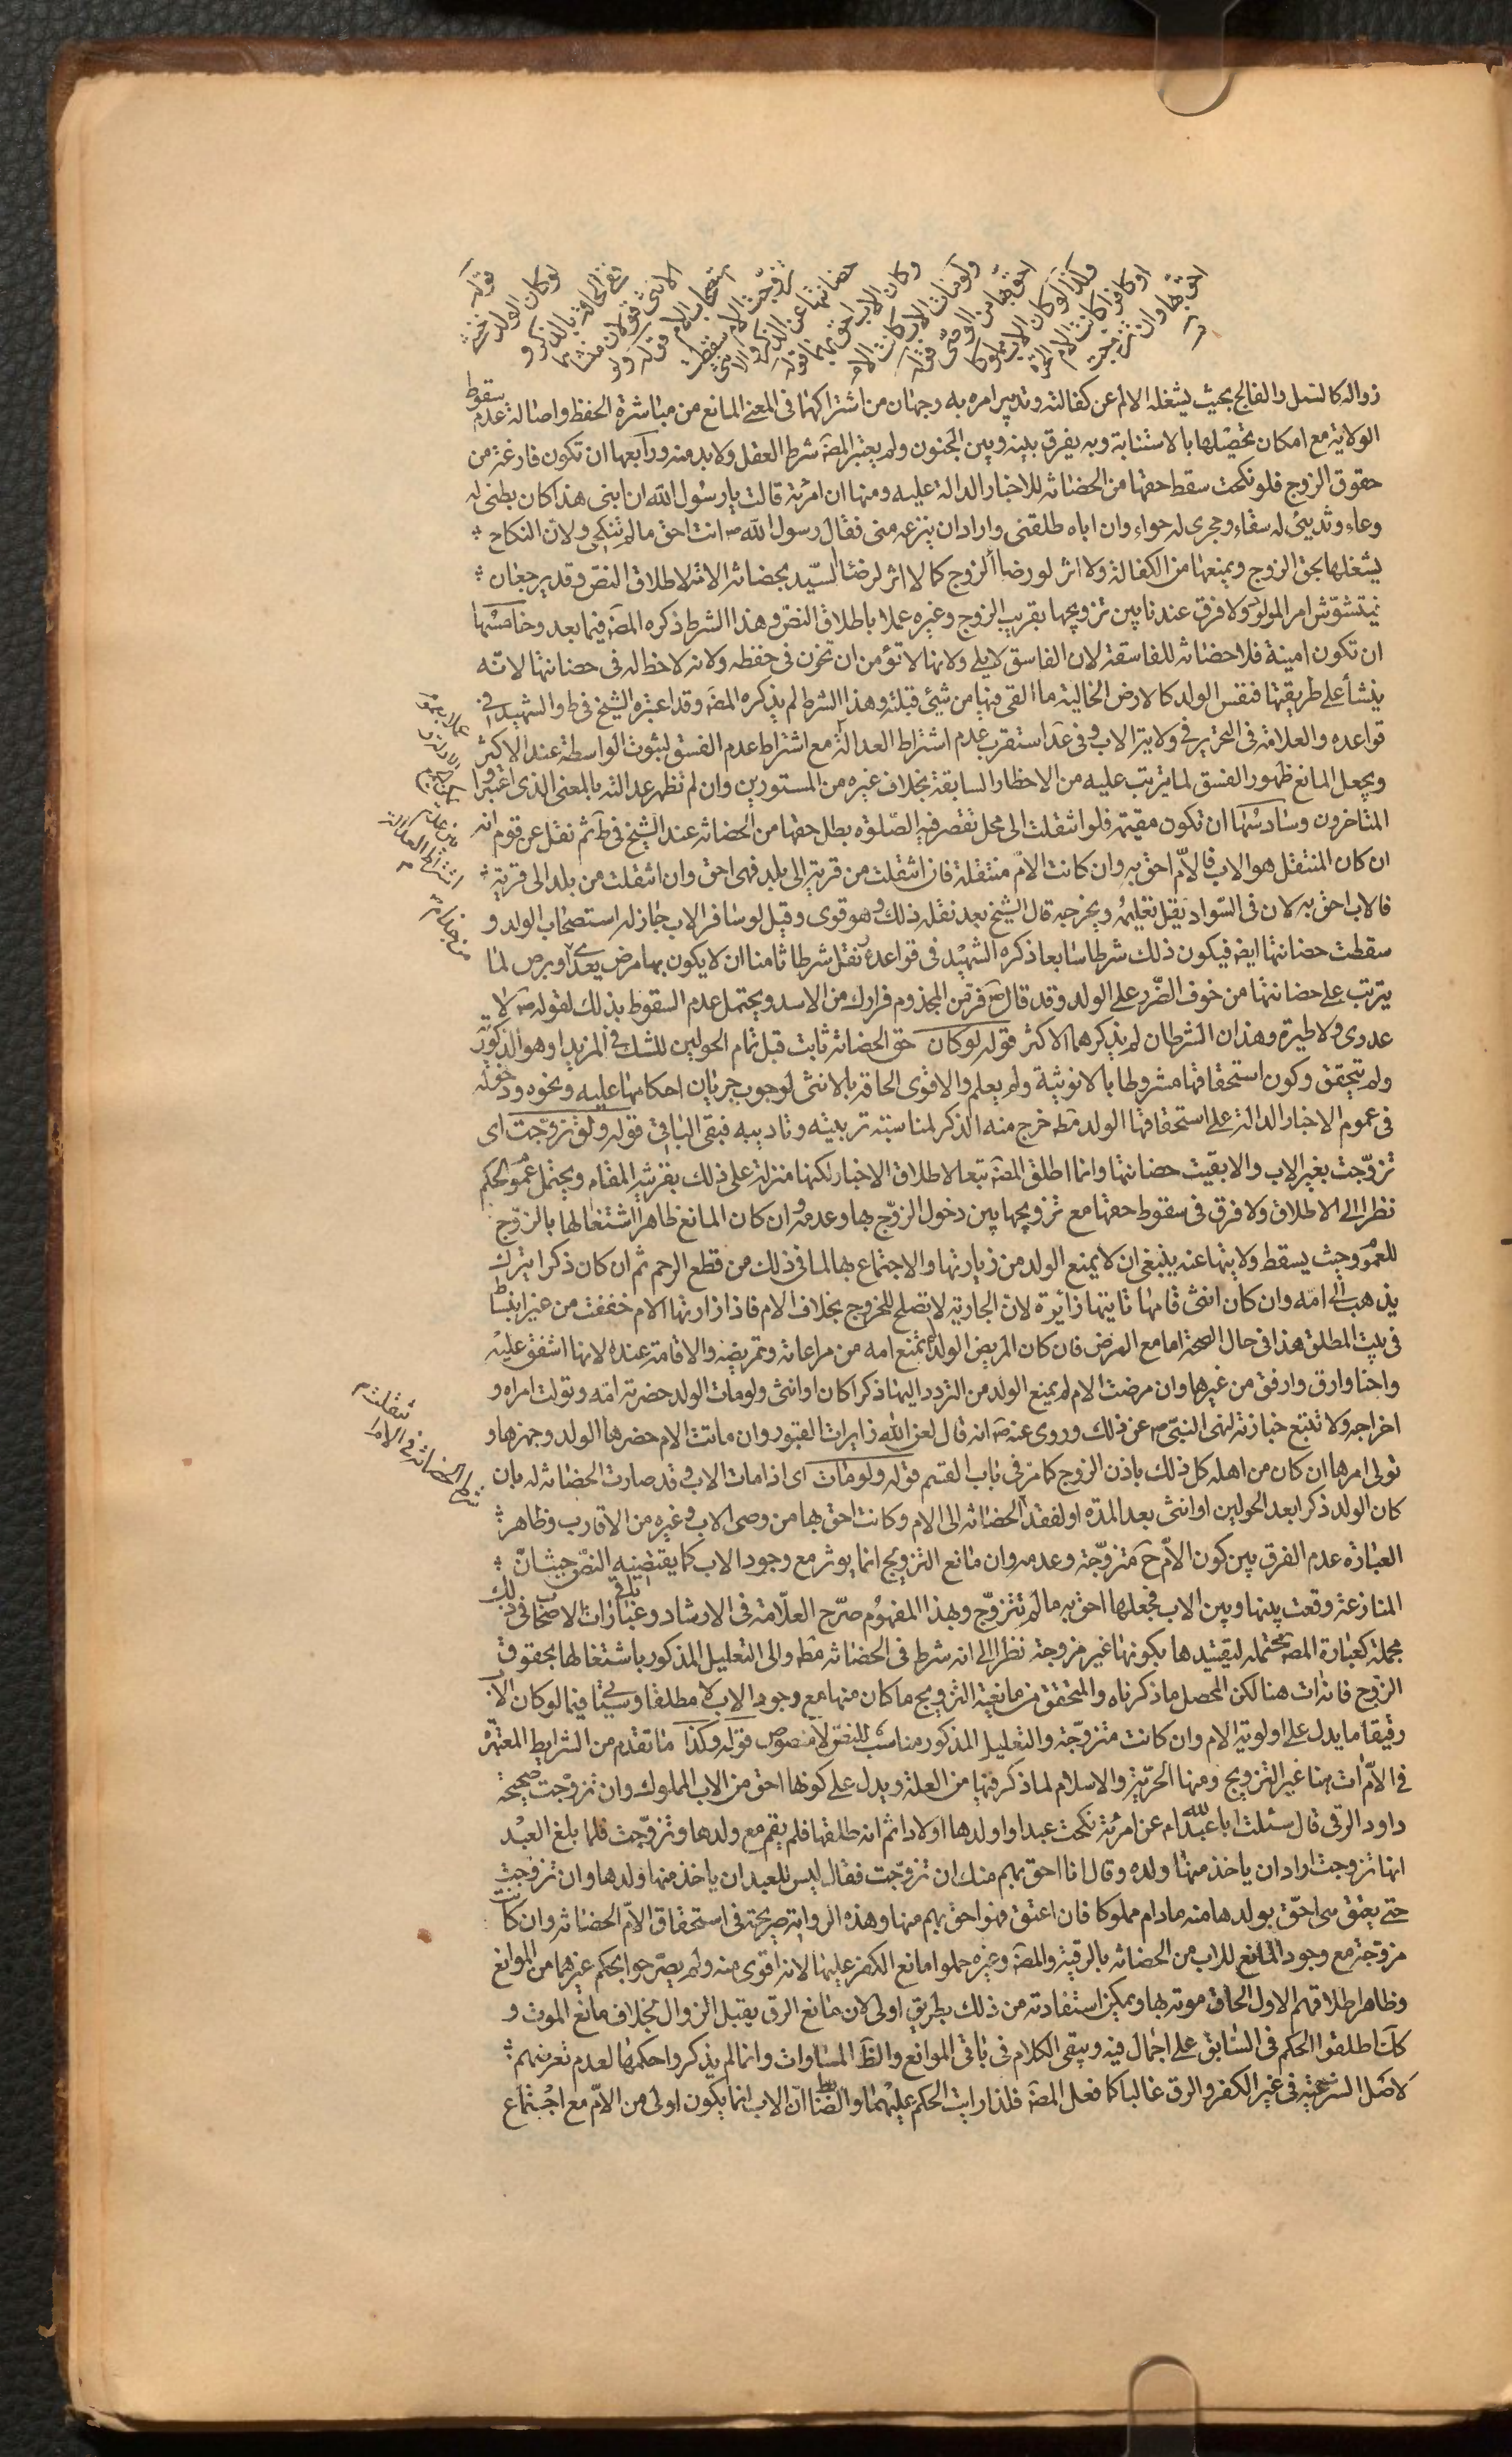 قوله لو كان الولد خنثى
ففي الحاقه بالذكر او
الانثى قولان منشأهما
استصحاب الام قوله ولو
تزوجت الام سقطت
حضانتها عن الذكر والانثى
وكان الاب احق بهما قوله
ولو مات الاب كانت الام
احق بهما من الوصي قوله
وكذا لو كان الاب مملوكا
او كافرا كانت الام الحرة
احق بهما وان تزوجت
زواله كالسل والفالج بحيث يشغله الالم عن كفالته وتدبير امره به وجهان من اشتراكهما فى المعنى المانع من مباشرة الحفظ واصالة عدم سقوط
الولاية مع امكان تحصيلها بالاستنابة وبه يفرق بينه وبين الجنون ولم يعتبر المصّ شرط العقل ولا بد منه ورابعها ان تكون فارغة من
حقوق الزوج فلو نكحت سقط حقها من الحضانة للاخبار الدالة عليه ومنها ان امرئة قالت يا رسول الله ان ابنى هذا كان بطنى له
وعاء وثديى له سقاء وحجرى له حواء وان اباه طلقنى واراد ان ينزعه منى فقال رسول الله ص انت احق ما لم تنكحى ولان النكاح
يشغلها بحق الزوج ويمنعها من الكفالة ولا اثر لو رضا الزوج كما لا اثر لرضا السيّد بحضانة الامة لاطلاق النص وقد يرجعان
فيتشوّش امر المولود ولا فرق عندنا بين تزويجها بقريب الزوج وغيره عملا باطلاق النص وهذا الشرط ذكره المصّ فيما بعد وخامسها
ان تكون امينة فلا حضانة للفاسقة لان الفاسق لا يلى ولانها لا تؤمن ان تخون فى حفظه ولانه لا حظ له فى حضانتها لانّه
ينشأ على طريقتها فنفس الولد كالارض الخالية ما القى فيها من شيئ قبلته وهذا الشرط لم يذكره المصّ وقد اعتبره الشيخ فى ط والشهيد فى
قواعده والعلامة فى التحرير فى ولاية الاب وفى عد استقرب عدم اشتراط العدالة مع اشتراط عدم الفسق لثبوت الواسطة عند الاكثر
ويجعل المانع ظهور الفسق لما يترتب عليه من الاخطار السابقة بخلاف غيره من المستورين وان لم تظهر عدالته بالمعنى الذى اعتبروا
المتاخرون وسادسها ان تكون مقيمة فلو انتقلت الى محل تقصر فيه الصّلوة بطل حقها من الحضانة عند الشيخ فى ط ثم نقل عن قوم انه
ان كان المنتقل هو الاب فالامّ احق به وان كانت الام منتقلة فان انتقلت من قرية الى بلد فهى احق وان انتقلت من بلد الى قرية
فالاب احق به لان فى السّواد يقل تعليمه ويخرجه قال الشيخ بعد نقله ذلك وهو قوى وقيل لو سافر الاب جاز له استصحاب الولد و
سقطت حضانتها ايضا فيكون ذلك شرطا سابعا ذكره الشهيد فى قواعده ونقل شرطا ثامنا ان لا يكون بها مرض يعدى او برص لما
يترتب على حضانتها من خوف الضّرر على الولد وقد قال ص فرّ من المجذوم فرارك من الاسد ويحتمل عدم السقوط بذلك لقوله ص لا
عدوى ولا طيرة وهذان الشرطان لم يذكرهما الاكثر قوله لو كان حق الحضانة ثابت قبل تمام الحولين للشك فى المزيد او هو الذكورة
ولم يتحقق وكون استحقاقها مشروطا بالانوثية ولم يعلم والاقوى الحاقه بالانثى لوجوب جريان احكامها عليه ونحوه ودخوله
فى عموم الاخبار الدالة على استحقاقها الولد مط خرج منه الذكر لمناسبته تربيته وتاديبه فبقى الباقى قوله ولو تزوّجت اى
تزوّجت بغير الاب والا بقيت حضانتها وانما اطلق المصّ تبعا لاطلاق الاخبار لكنها منزلة على ذلك بقرينة المقام ويحتمل عموم الحكم
نظرا الى الاطلاق ولا فرق فى سقوط حقها مع تزويجها بين دخول الزوّج بها وعدمه وان كان المانع ظاهرا اشتغالها بالزوّج
للعموم وحيث يسقط ولايتها عنه ينبغى ان لا يمنع الولد من زيارتها والاجتماع بها لما فى ذلك من قطع الرحم ثم ان كان ذكرا يترك
يذهب الى امّه وان كان انثى فامها تاتيها زائرة لان الجارية لا تصلح للخروج بخلاف الام فاذا زارتها الام خففت من غير انبساط
فى بيت المطلق هذا فى حال الصحة اما مع المرض فان كان المريض الولد لم تمنع امه من مراعاته وتمريضه والاقامة عنده لانها اشفق عليه
واحنا وارق وارفق من غيرها وان مرضت الام لم يمنع الولد من التردد اليها ذكرا كان او انثى ولو مات الولد حضرته امّه وتولت امراه و
اخراجه ولا تتبع جنازته لنهى النبىّ ص عن ذلك وروى عنه ص انه قال لعن الله زايرات القبور وان ماتت الام حضرها الولد وجهزها و
تولى امرها ان كان من اهله كل ذلك باذن الزوج كما مر فى باب القسم قوله ولو مات اى اذا مات الاب وقد صارت الحضانة له بان
كان الولد ذكرا بعد الحولين او انثى بعد المدّة او لفقد الحضانة الى الام وكانت احق بها من وصى الاب وغيره من الاقارب وظاهر
العبارة عدم الفرق بين كون الامّ ح متزوّجة وعدمه وان مانع التزويج انما يوثر مع وجود الاب كما يقتضيه النصّ حيث انّ
المنازعة وقعت بينها وبين الاب فجعلها احق به ما لم تتزوّج وبهذا المفهوم صرّح العلّامة فى الارشاد وعبارات باقى الاصحاب فى ذلك
مجملة كعبارة المصّ محتملة لتقييدها بكونها غير مزوجة نظرا الى انه شرط فى الحضانة مط والى التعليل المذكور باشتغالها بحقوق
الزّوج فانه ات هنا لكن المحصل ما ذكرناه والمتحقق من مانعية التزويج ما كان منها مع وجود الاب لا مطلقا وسياتى فيما لو كان الاب
رقيقا ما يدل على اولوية الام وان كانت متزوّجة والتعليل المذكور مناسب للنص لا منصوص قوله وكذا ما تقدم من الشرايط المعتبرة
فى الامّ ات هنا غير التزويج ومنها الحرّية والاسلام لما ذكر فيها من العلة ويدل على كونها احق من الاب المملوك وان تزوّجت صحيحة
داود الرقى قال سئلت ابا عبد الله ع عن امرئة نكحت عبدا واولدها اولادا ثم انه طلقها فلم يقم مع ولدها وتزوّجت فلما بلغ العبد
انها تزوجت اراد ان ياخذ منها ولده وقال انا احق بهم منك ان تزوّجت فقال ليس للعبد ان ياخذ منها ولدها وان تزوجت
حتى يعتق هى احقّ بولدها منه ما دام مملوكا فان اعتق فهو احق بهم منها وهذه الرواية صريحة فى استحقاق الامّ الحضانة وان كانت
مزوّجة مع وجود المانع للاب من الحضانة بالرقية والمصّ وغيره حملوا مانع الكفر عليها لانه اقوى منه ولم يصرّحوا بحكم غيرهما من الموانع
وظاهر اطلاقهم الاول الحاق موته بها ويمكن استفادته من ذلك بطريق اولى لان مانع الرق يقبل الزوال بخلاف مانع الموت و
كما اطلقوا الحكم فى السّابق على اجمال فيه ويبقى الكلام فى باقى الموانع والظّ المساوات وانما لم يذكروا حكمها لعدم تعرضهم
لاصل الشرعية فى غير الكفر والرق غالبا كما فعل المصّ فلذا رايت الحكم عليهما والضابط ان الاب انما يكون اولى من الامّ مع اجتماع
عملا بعموم
الادلة و
اشتراط العدالة
تنتقل
الحضانة فى الاماء